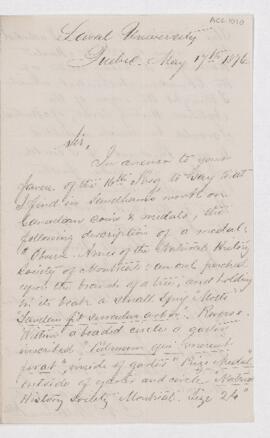 ACC.1010
Laval University
Quebec. May 17th 1896
Sir,
In answer to your
favor of the 16th I beg to say that
I find in Sandham's work on
Canadian coins & medals, the
following description of a medal:
"Obverse. Arms of the Natural History
Society of Montreal: an owl perched
upon the branch of a tree, and holding
in its beak a small sprig. Motto
Tandem fit surculus arbor". Reverse.
Within a beaded circle a garter
inscribed
ferat", inside of garter "Prize Medal"
outside of garter and circle "Natural
History Society Montreal. Size 24"